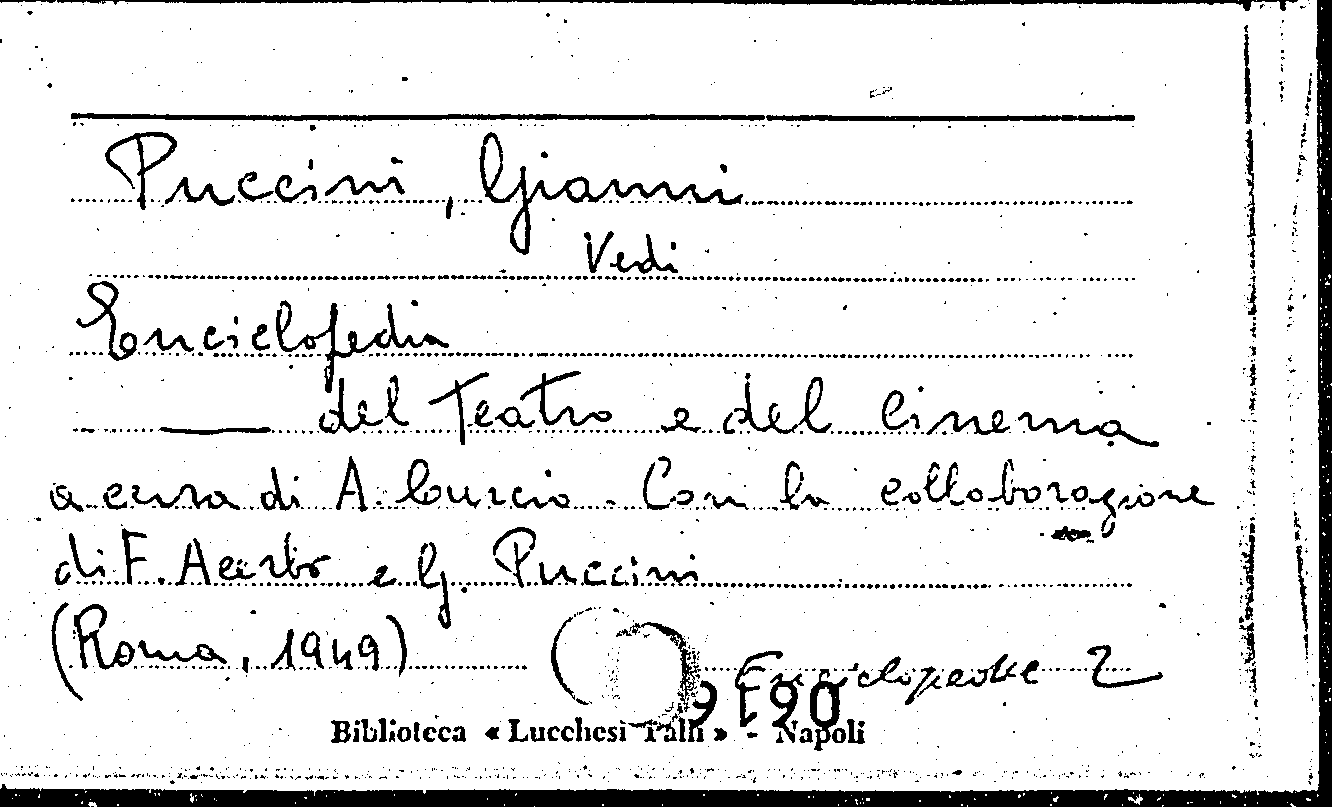 Puccini, Gianni
Vedi
Enciclopedia
—— del Teatro e del Cinema
a cura di A. Curcio. Con la collaborazione
di F. Acerbo e G. Puccini
(Roma, 1949)
Enciclopedie 2
Biblioteca « Lucchesi Palli » - Napoli